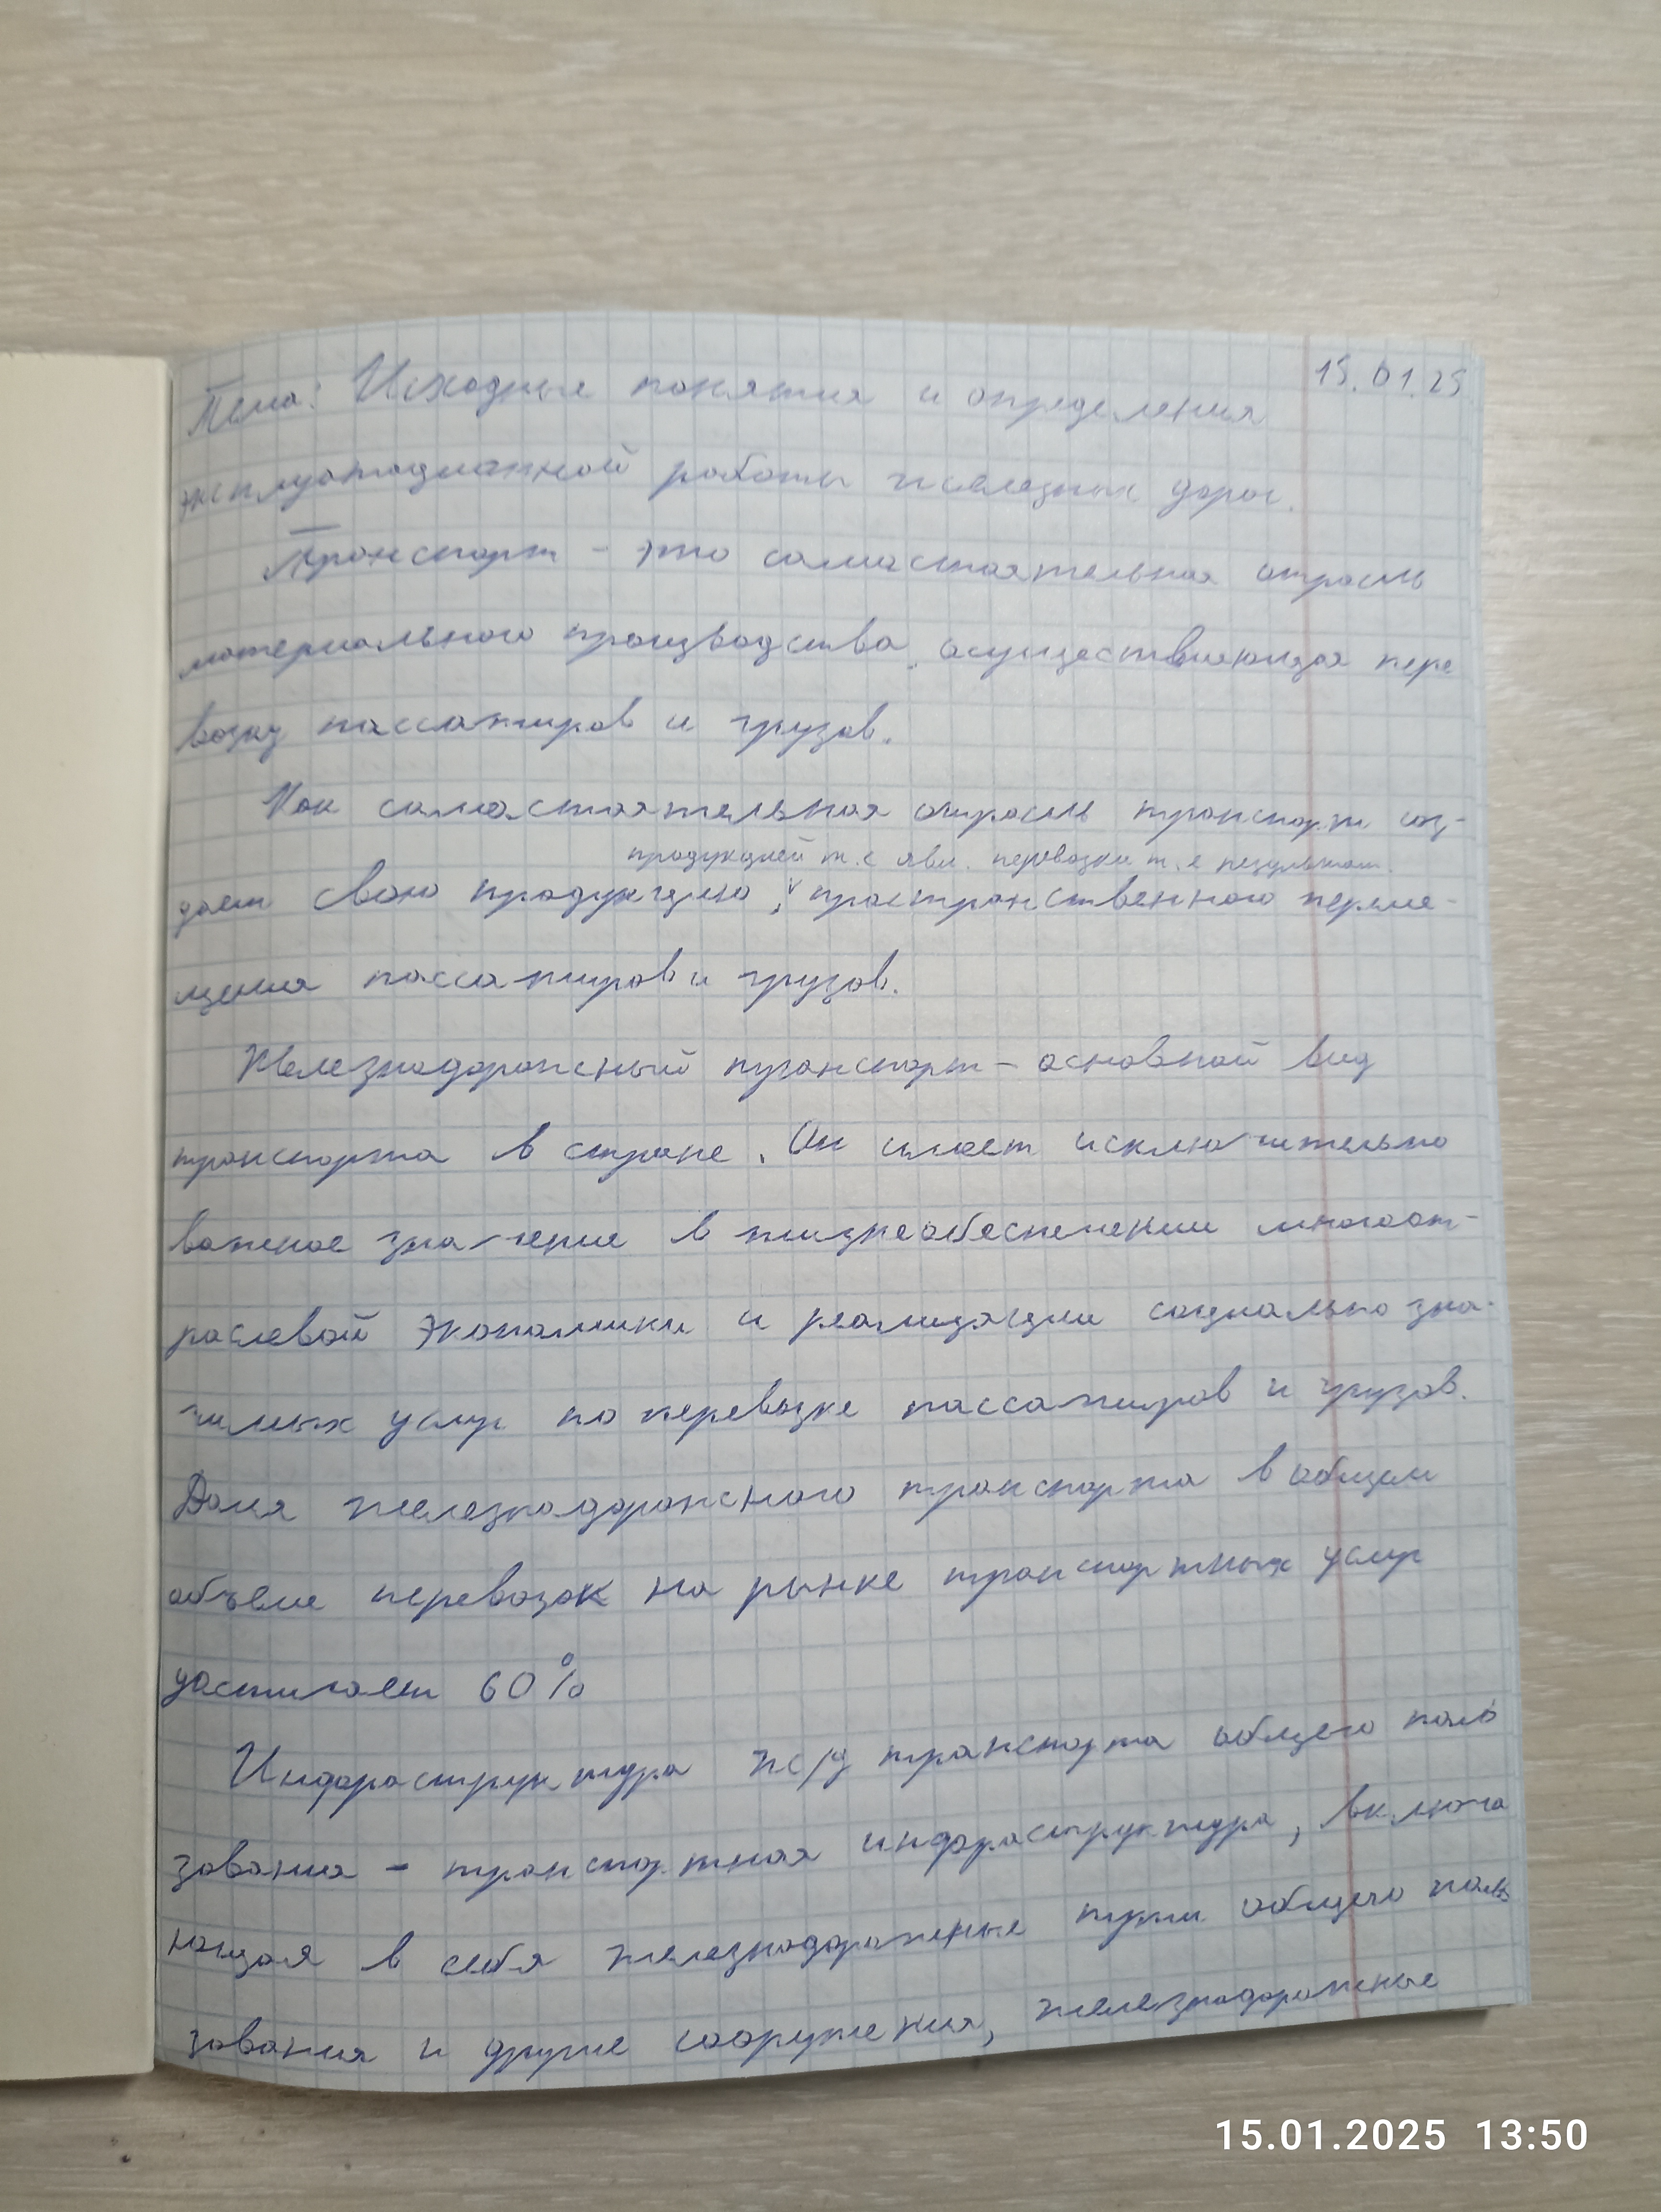 15.01.25
Тема: Исходные понятия и определения
эксплуатационной работы железных дорог.
Транспорт - это самостоятельная отрасль
материального производства, осуществляющая пере
возку пассажиров и грузов.
Как самостоятельная отрасль транспорт соз-
продукцией т.с явл. перевозки т.е результат
дает свою продукцию, пространственного переме-
щения пассажиров и грузов.
Железнодорожный транспорт - основной вид
транспорта в стране. Он имеет исключительно
важное значение в жизнеобеспечении многоот-
раслевой экономики и реализации социально зна-
чимых услуг по перевозке пассажиров и грузов.
Доля железнодорожного транспорта в общем
объеме перевозок на рынке транспортных услуг
достигает 60%
Инфраструктура ж/д транспорта общего поль
зования - транспортная инфраструктура, включа
ющая в себя железнодорожные пути общего поль
зования и другие сооружения, железнодорожные
15.01.2025 13:50